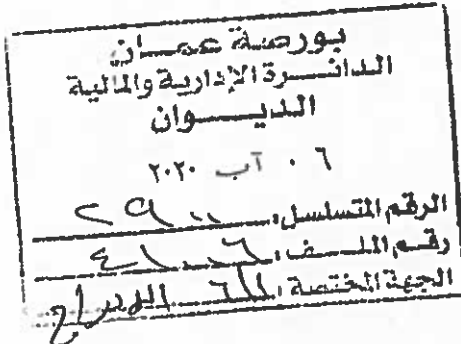 بورصة عمان
الدائرة الإدارية والمالية
الديوان
٠٦ آب ٢٠٢٠
الرقم المتسلسل:
رقم الملف:
الجهة المختصة: الإدراج